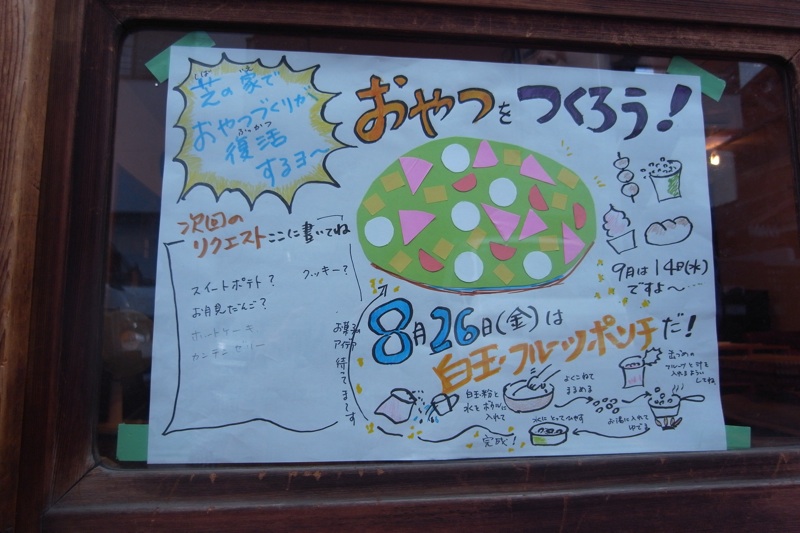 芝の家で
しば いえ
おやつづくりが
復活
ふっかつ
するヨ〜
おやつをつくろう!
次回の
リクエストここに書いてね
スイートポテト?
クッキー?
お月見だんご?
ホットケーキ
カンテンゼリー
お菓子
アイデア
待ってま〜す
9月は14日(水)
ですよ〜
8月26日(金)は
白玉・フルーツポンチだ!
白玉粉と
水をボウルに
入れて
よくこねて
まるめる
お湯に入れて
ゆでる
水にとってひやす
完成!
缶づめの
フルーツと汁を
入れまぶし
してね